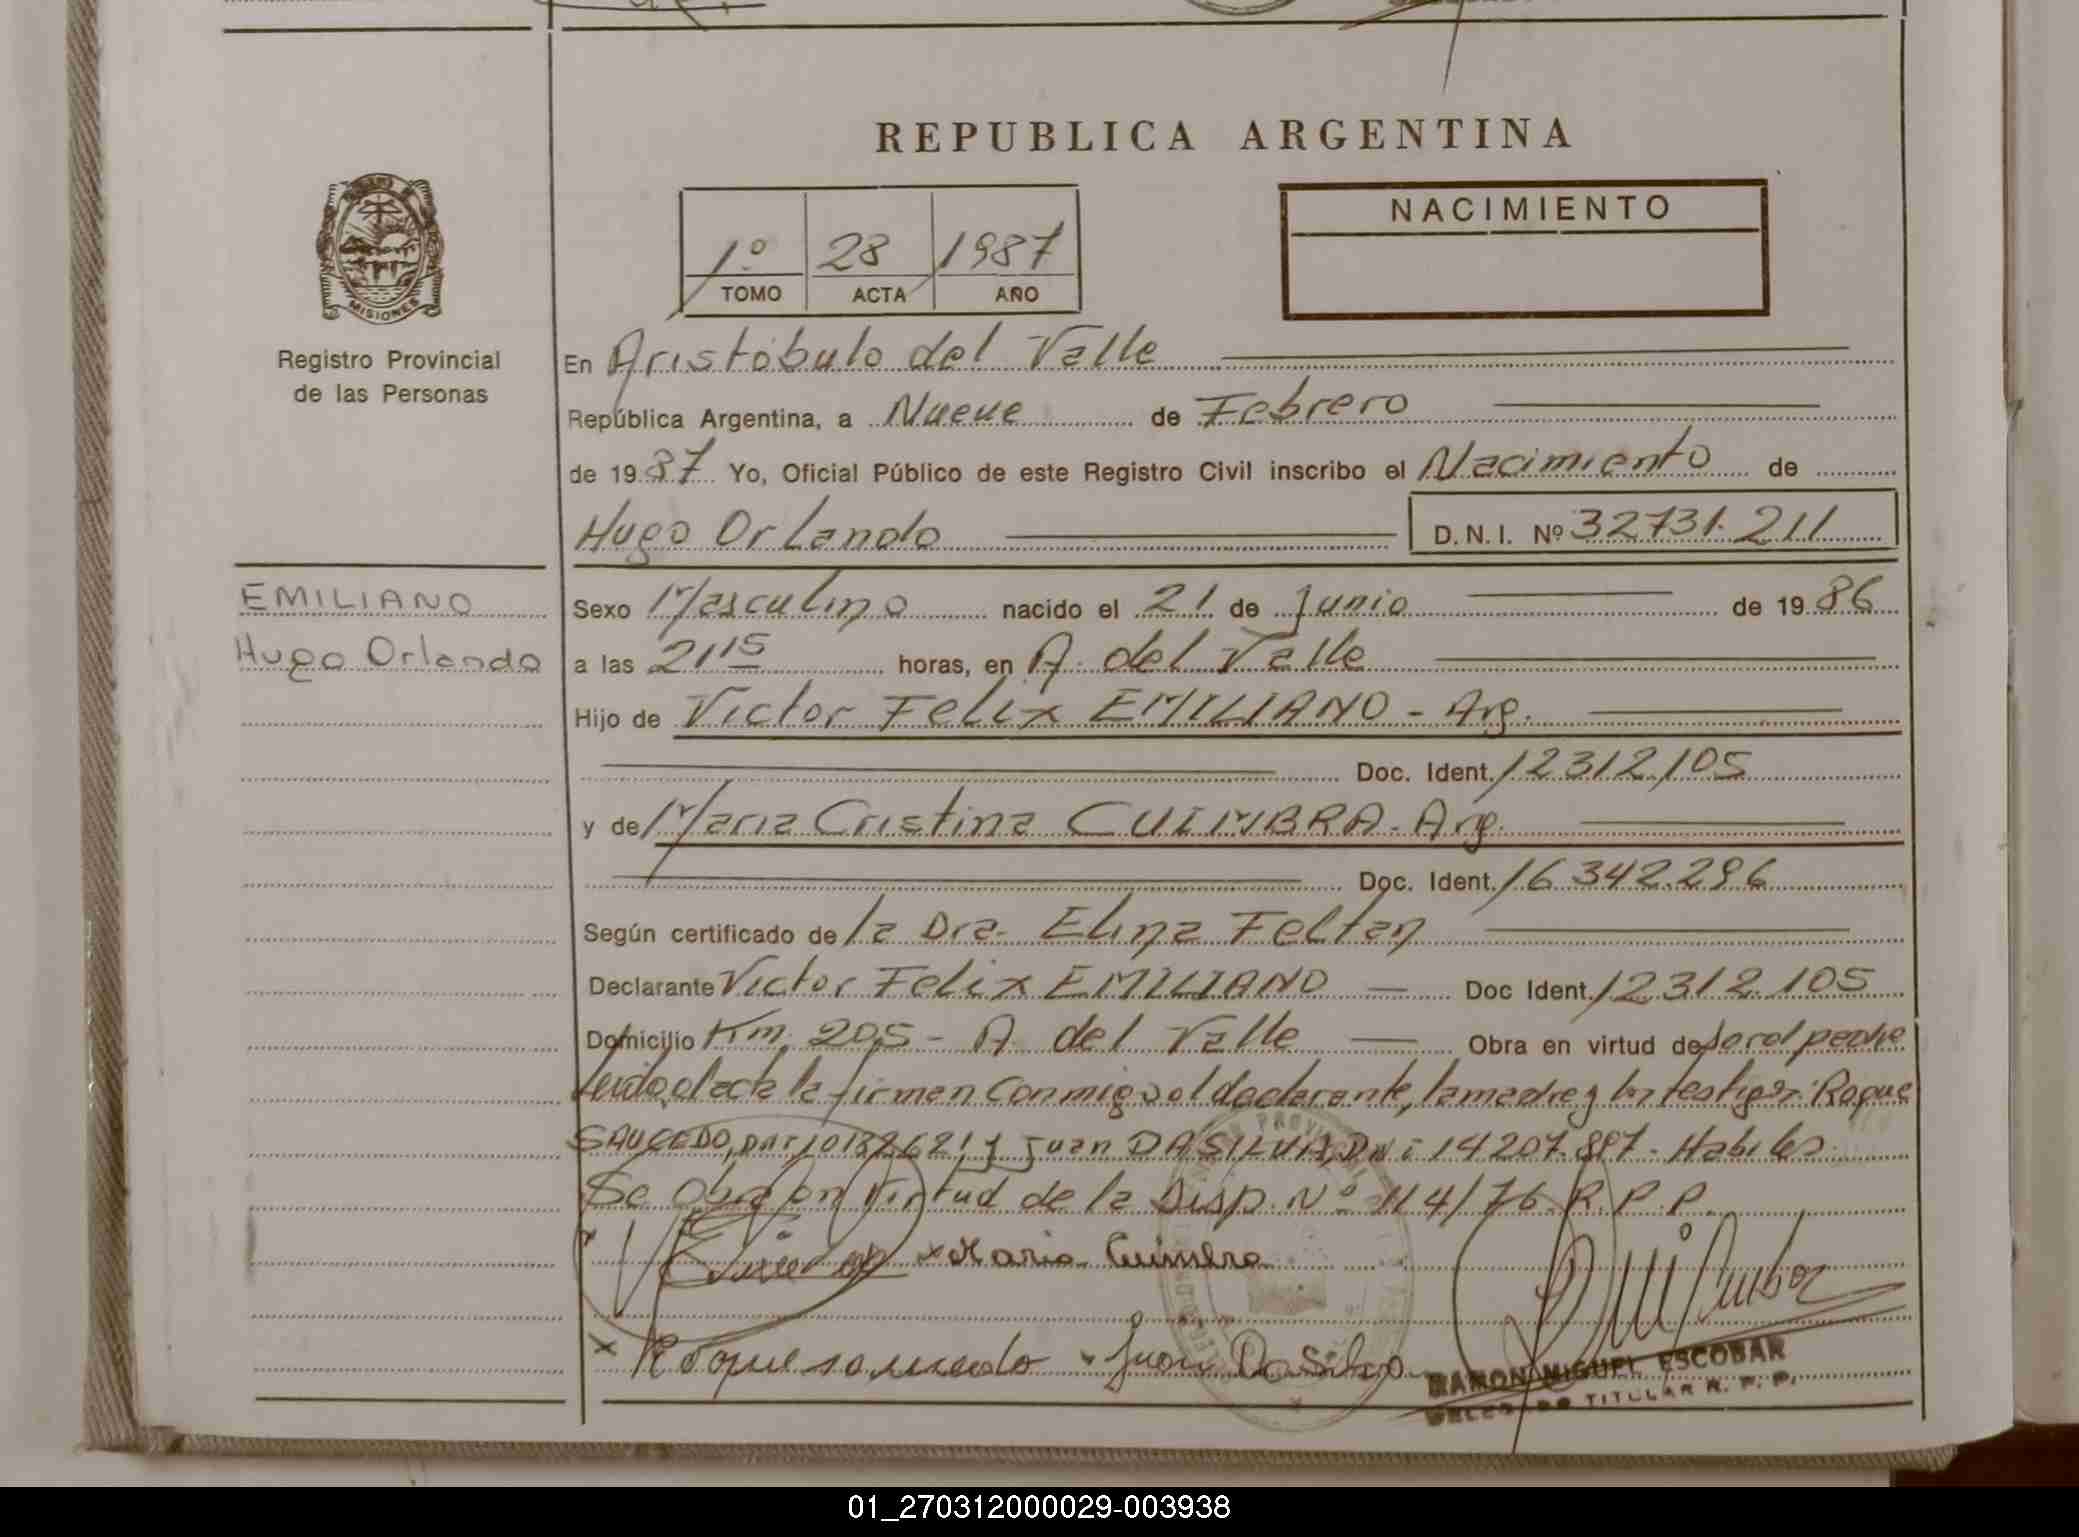 REPUBLICA ARGENTINA
1º 28 1987
TOMO ACTA AÑO
NACIMIENTO
MISIONES
Registro Provincial
de las Personas
En Aristóbulo del Valle
República Argentina, a Nueve de Febrero
de 1987 Yo, Oficial Público de este Registro Civil inscribo el Nacimiento de
Hugo Orlando D.N.I. Nº 32731.211
EMILIANO
Hugo Orlando
Sexo Masculino nacido el 21 de Junio de 1986
a las 21 15 horas, en A. del Valle
Hijo de Victor Felix EMILIANO - Arg.
Doc. Ident. 12312105
y de Maria Cristina CUIMBRA - Arg.
Doc. Ident. 16 342.296
Según certificado de la Dra. Elina Feltan
Declarante Victor Felix EMILIANO — Doc Ident. 12312.105
Domicilio Km. 205 - A. del Valle — Obra en virtud de ser el padre
leida el acta la firman conmigo el declarante, la madre y los testigos: Roque
SAUCEDO, DNI 10182621 y Juan DASILVA, Dni 14207.897 - Habiles
Se obra en virtud de la Disp. Nº 114/76 R.P.P.
x Maria Cuimbra
x Roque saucedo Juan Da Silva
RAMON MIGUEL ESCOBAR
DELEGADO TITULAR R. P. P.
01_270312000029-003938